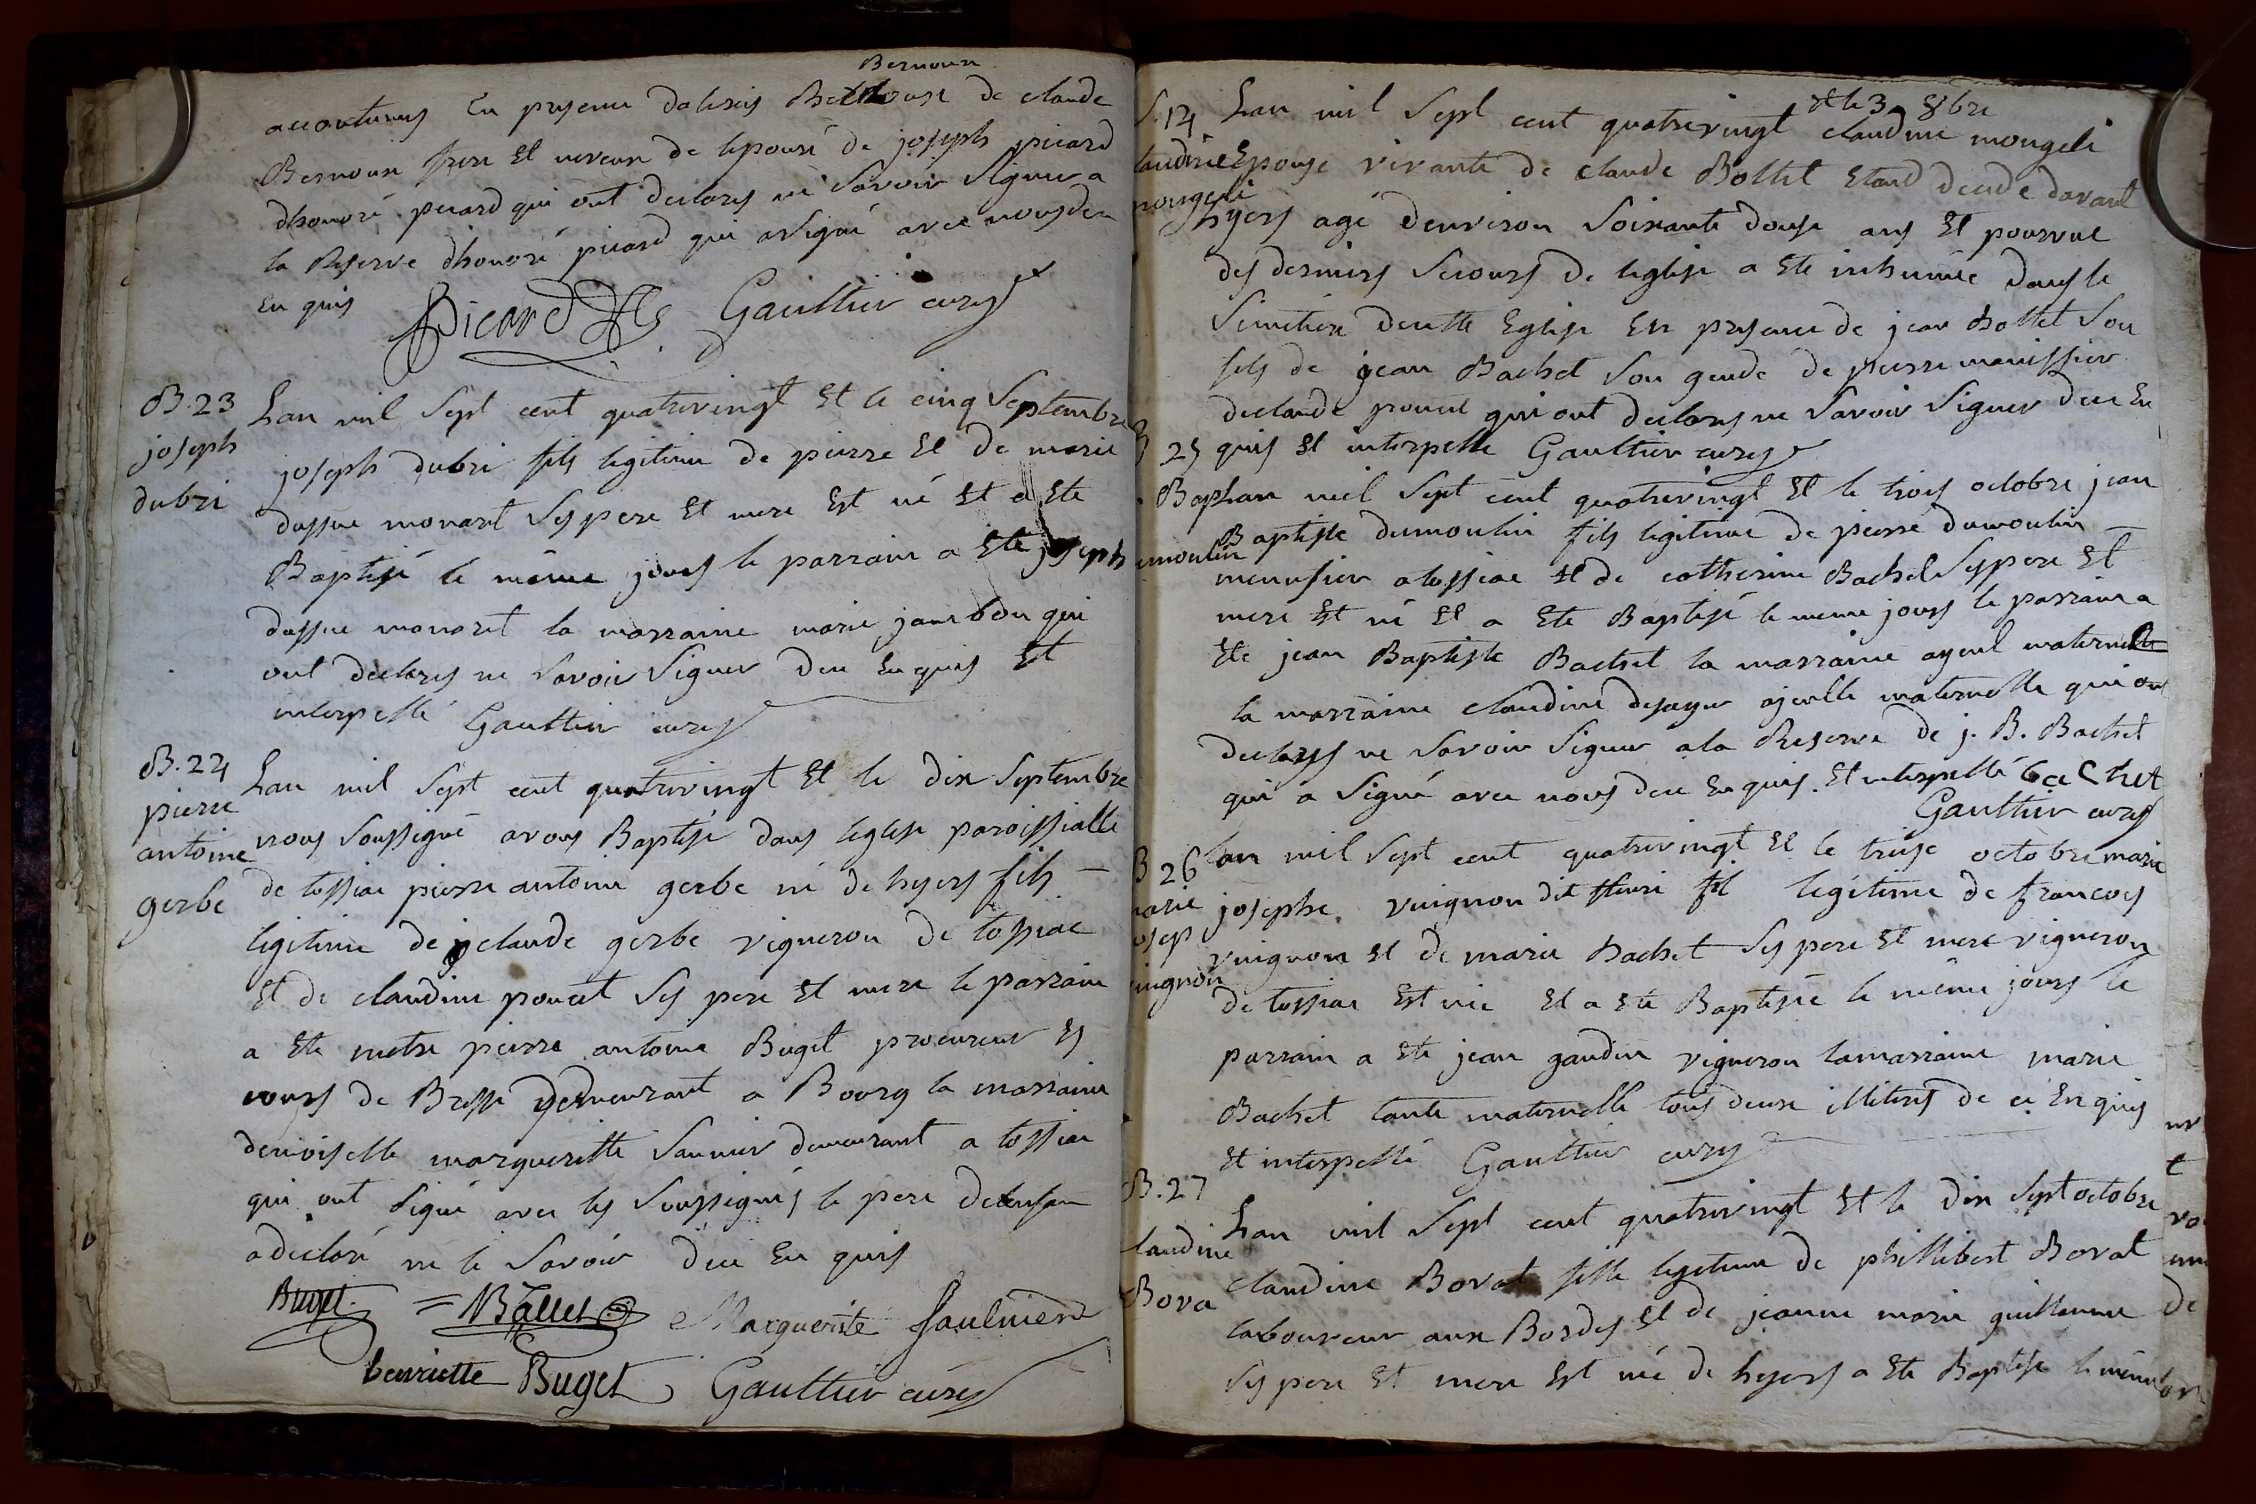 Bernoux
accoutumés En presence dalexis de claude
Bernoux frere Et neveux de lepouse de joseph picard
dhonoré picard qui ont declarés ne Savoir Signer a
la Reserve dhonoré picard qui a Signé avec nous de
En quis
Picard fils Gaultier curé
B. 23
joseph
dubri
Lan mil Sept cent quatrevingt Et le cinq Septembre
joseph dubri fils legitime de pierre Et de marie
monaret Ses pere Et mere Est né Et a Ete
Baptisé le même jours le parrain a Ete joseph
monaret la marraine marie jambon qui
ont declarés ne Savoir Signer deu En quis Et
interpellé Gaultier curé
B. 24
pierre
antoine
gerbe
Lan mil Sept cent quatrevingt Et le dix Septembre
nous Soussigné avons Baptisé dans leglise paroissialle
de tossiac pierre antoine gerbe né de hyers fils
legitime de claude gerbe vigneron de tossiac
Et de claudine poncet Ses pere Et mere le parrain
a Ete metre pierre antoine Buget procureur Es
cours de Bresse demeurant a Bourg la marraine
demoiselle margueritte Saunier demeurant a tossiac
qui ont Signé avec les Soussignés le pere de lenfan
a declaré ne le Savoir deu En quis
Buget = NBallet Marguerite Saulnier
henriette Buget Gaultier curé
S. 14
laudine
mongeli
Lan mil Sept cent quatrevingt Et le 3e 8bre claudine mongeli
Epouse vivante de claude Bottet Etant decede davant
hyers agé denviron Soixante douse ans Et pourvue
des derniers Secours de leglise a Ete inhumée dans le
Simetiere de cette Eglise En presence de jean Bottet Son
fils de jean Bachet Son gendre de pierre manissier
de claude poncet qui ont declarés ne Savoir Signer deu En
quis Et interpellé Gaultier curé
25
Bap
umoulin
Lan mil Sept cent quatrevingt Et le trois octobre jean
Baptiste dumoulin fils legitime de pierre dumoulin
menusier a tossiac Et de catherine Bachet Ses pere Et
mere Est né Et a Ete Baptisé le meme jours le parrain a
Ete jean Baptiste Bachet la marraine ayeul maternelle
la marraine claudine ajeulle maternelle qui on
declarés ne Savoir Signer a la Reserve de j. B. Bachet
qui a Signé avec nous deu En quis Et interpellé baChet
Gaultier curé
B 26
marie
osep
uignon
Lan mil Sept cent quatrevingt Et le treise octobre marie
josephe vuignon dit fleuri fil legitime de francois
vuignon Et de marie Bachet Ses pere Et mere vigneron
de tossiac Est née Et a Eté Baptisée le même jours le
parrain a Ete jean gaudin vigneron la marraine marie
Bachet tante maternelle tous deux illiterés de ce En quis
Et interpellé Gaultier curé
B. 27
laudine
Bova
Lan mil Sept cent quatrevingt Et le dix Sept octobre
claudine Bovat fille legitime de phillibert Bovat
laboureur aux Bordes Et de jeanne marie guillermi
Ses pere Et mere Est né de hyers a Ete Baptise le même